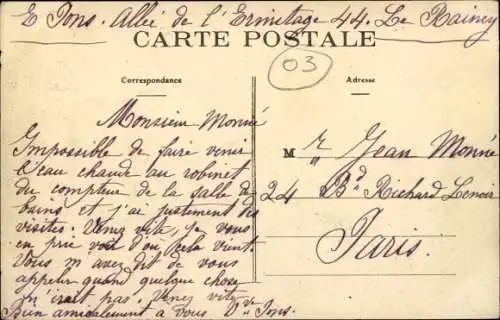 E Pons. Allée de l'Ermitage 44. Le Rainey
CARTE POSTALE
03
Correspondance
Adresse
Monsieur Monné
Impossible de faire venir
l'eau chaude au robinet
du compteur de la salle de
bains et j'ai justement des
visites. Venez vite, je vous
en prie voir d'ou cela vient.
Vous m'avez dit de vous
appeler quand quelque chose
n'irait pas. Venez vite
Bien amicalement a vous Vve Pons.
M r Jean Monne
24 Bd Richard Lenoir
Paris.